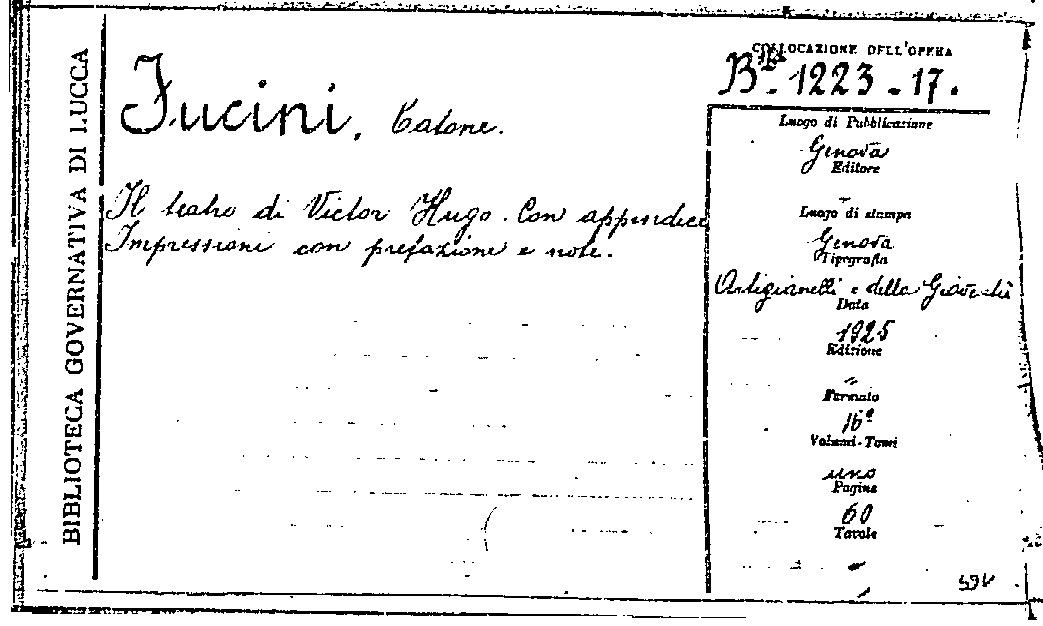 BIBLIOTECA GOVERNATIVA DI LUCCA
COLLOCAZIONE DELL'OPERA
B.ta 1223 - 17.
Fucini, Catone.
Il teatro di Victor Hugo. Con appendice
Impressioni con prefazione e note.
Luogo di Pubblicazione
Genova
Editore
"
Luogo di stampa
Genova
Tipografia
Artigianelli e della Gioventù
Data
1925
Edizione
"
Formato
16º
Volumi-Tomi
uno
Pagine
60
Tavole
"